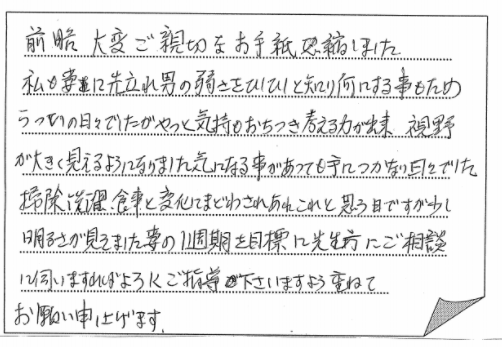 前略 大変ご親切なお手紙恐縮しました
私も妻に先立れ男の弱さをひしひしと知り何にする事もため
らうつらい日々でしたがやっと気持もおちつき考える力が出来 視野
が大きく見えるようになりました気になる事があっても手につかない日々でした
掃除 洗濯 食事と変化にまどわされあれこれと思う日ですが少し
明るさが見えました妻の1週期を目標に先生方にご相談
に伺いますればよろしくご指導下さいますよう重ねて
お願い申上げます.